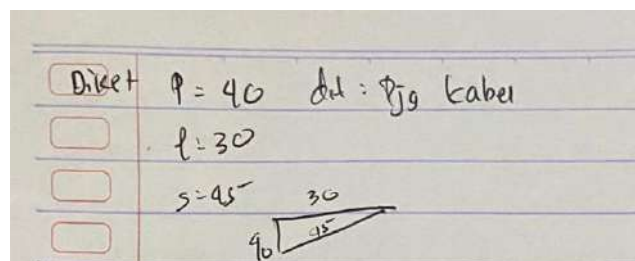 Diket P = 40 dit : Pjg kabel
l = 30
s = 45
30
40 45